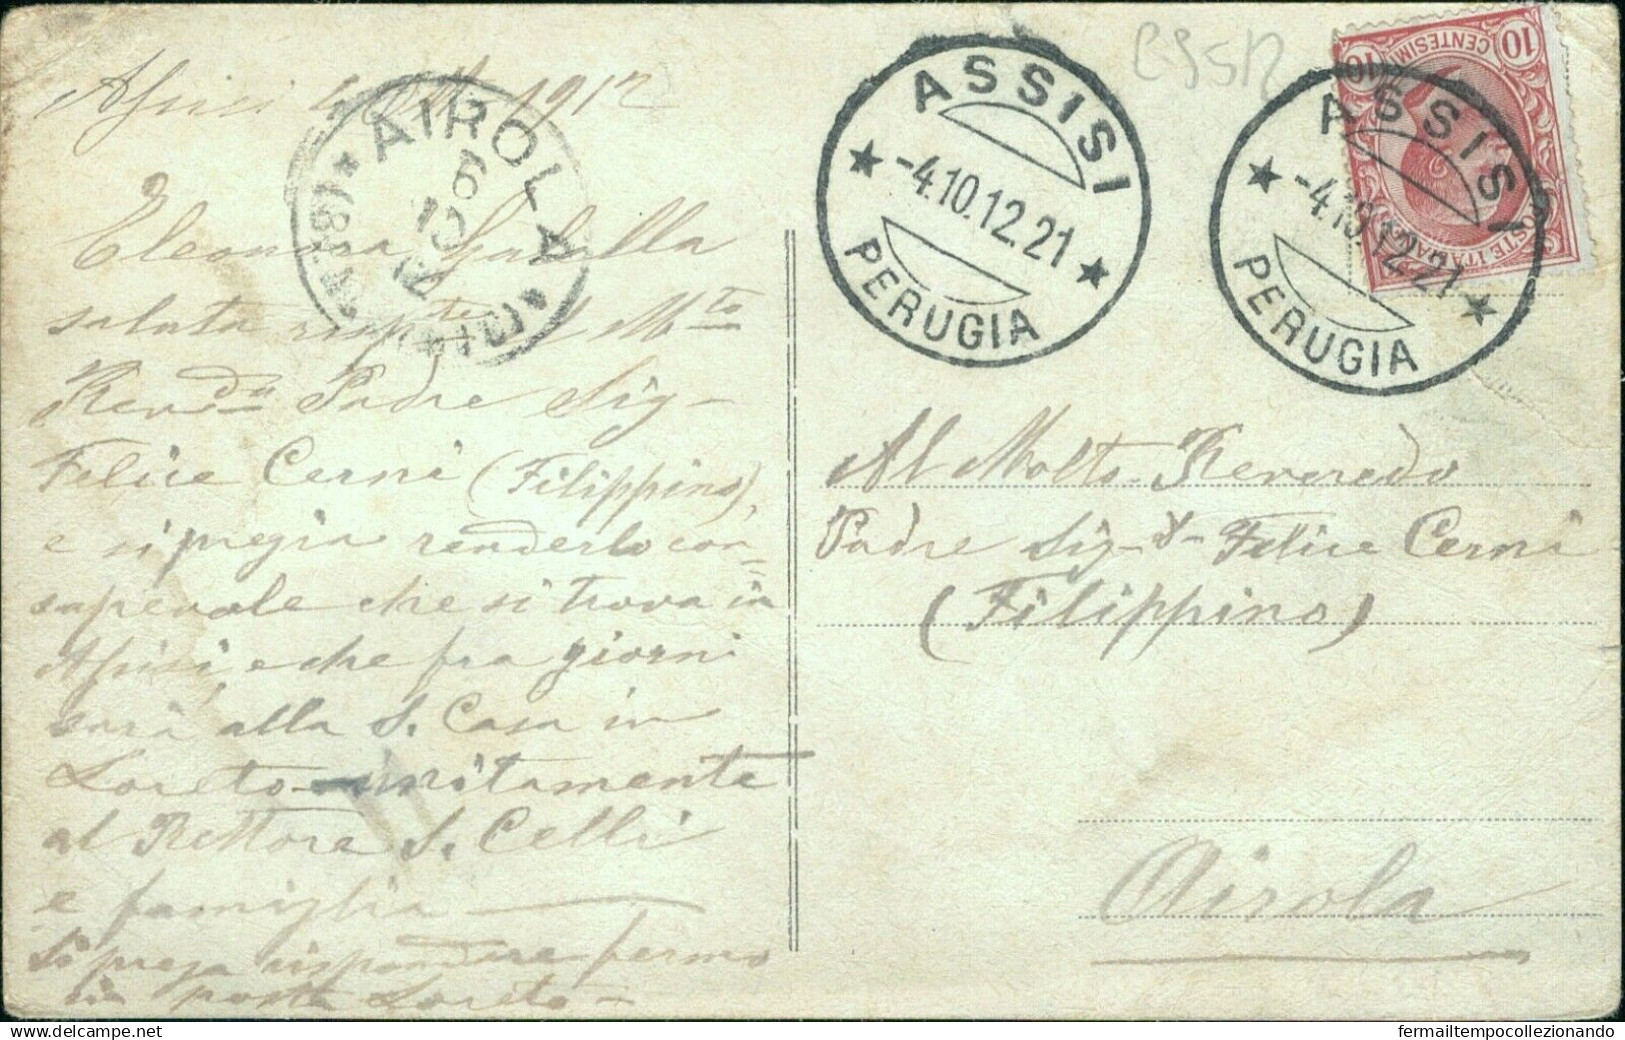 Assisi 4 1912
Eleonora
saluta risp.te il M.to
Rev.do Padre Sig
Felice Cerni (Filippino),
e si pregia renderlo con=
sapevole che si trova in
Assisi, e che fra giorni
sarà alla S. Casa in
Loreto unitamente
al Rettore S. Celli
e famiglia
Si prega rispondere fermo
in posta Loreto
AIROLA
6
10
12
ASSISI
-4.10.12.21
PERUGIA
C55R
10 CENTESIMI 10
POSTE ITALIANE
ASSISI
-4.10.12.21
PERUGIA
Al Molto Reveredo
Padre Sig.r Felice Cerni
(Filippino)
Airola
https://www.delcampe.net
fermailtempocollezionando